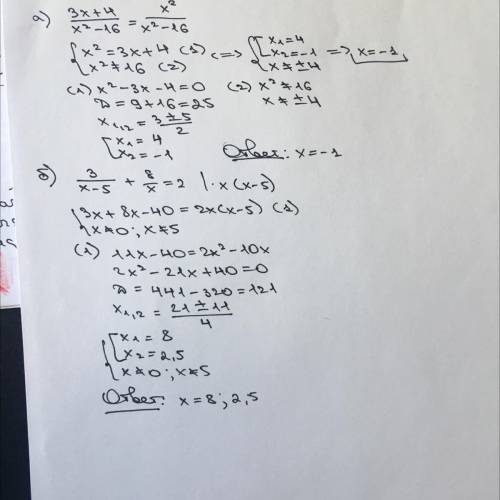 а) (3x+4)/(x²-16) = x²/(x²-16)
{x² = 3x+4 (1) {x² ≠ 16 (2) <=> {[x₁=4 [x₂=-1 {x ≠ ±4 => x=-1
(1) x²-3x-4=0 (2) x² ≠ 16
D = 9+16=25 x ≠ ±4
x₁,₂ = (3±5)/2
[x₁ = 4
[x₂ = -1 Ответ: x=-1
б) 3/(x-5) + 8/x = 2 |·x(x-5)
{3x+8x-40=2x(x-5) (1)
{x≠0; x≠5
(1) 11x-40=2x²-10x
2x²-21x+40=0
D=441-320=121
x₁,₂ = (21±11)/4
{[x₁ = 8
{[x₂ = 2,5
{x≠0; x≠5
Ответ: x=8; 2,5